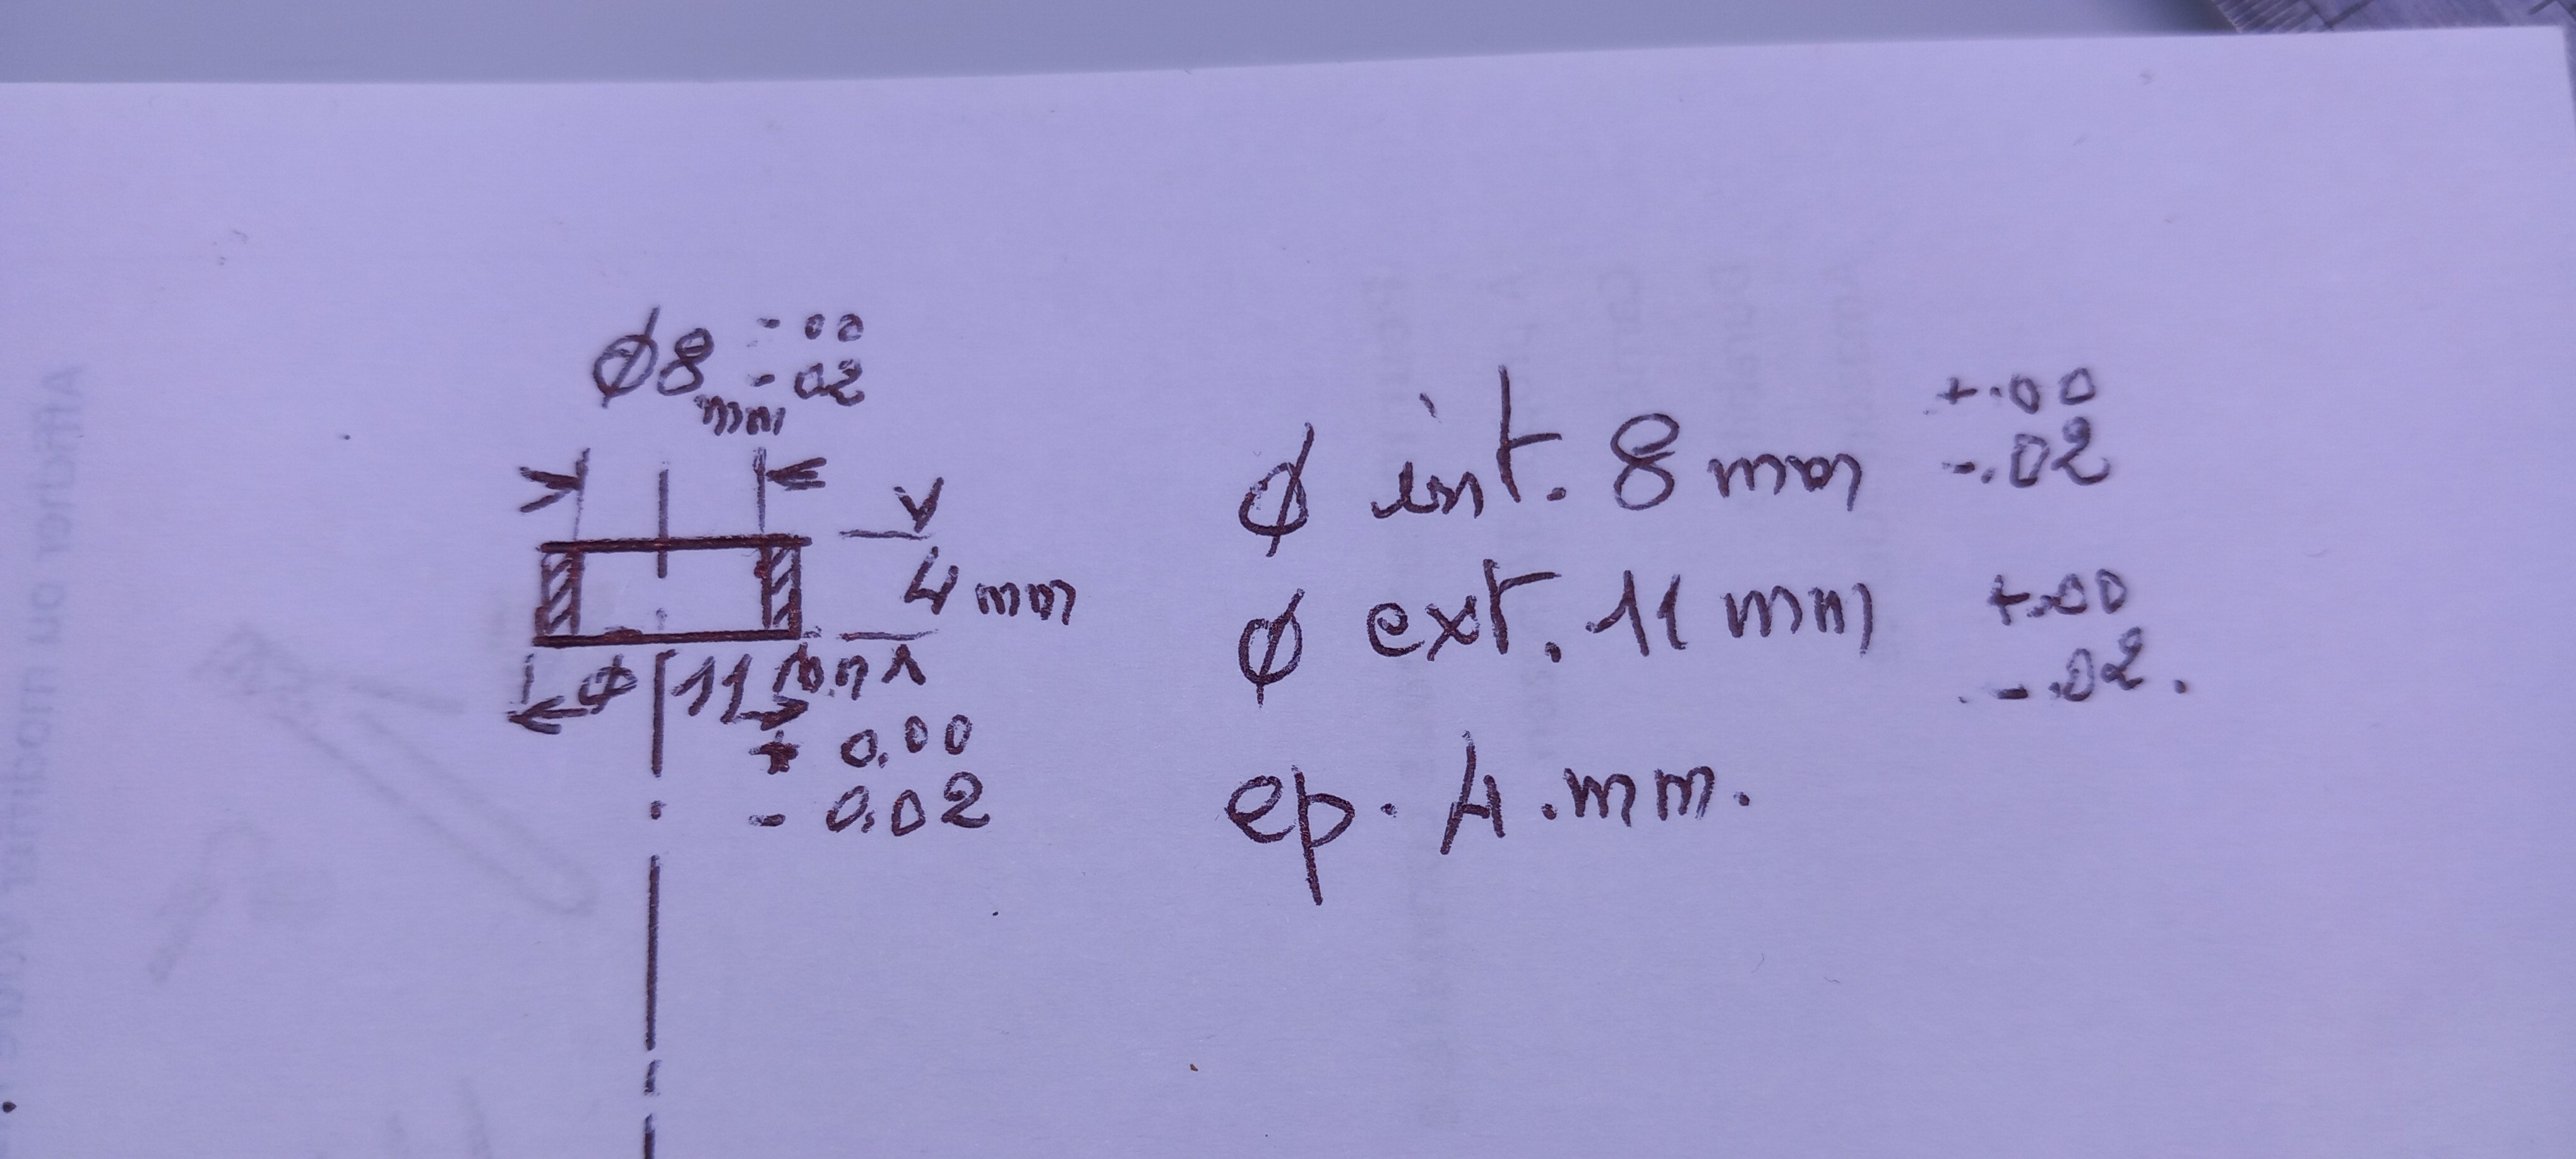 - 00
ø8 - 02
mm
4 mm
ø 11 mm
+ 0.00
- 0.02
+.00
ø int. 8 mm -.02
ø ext. 11 mm +.00
-.02.
ep. 4.mm.